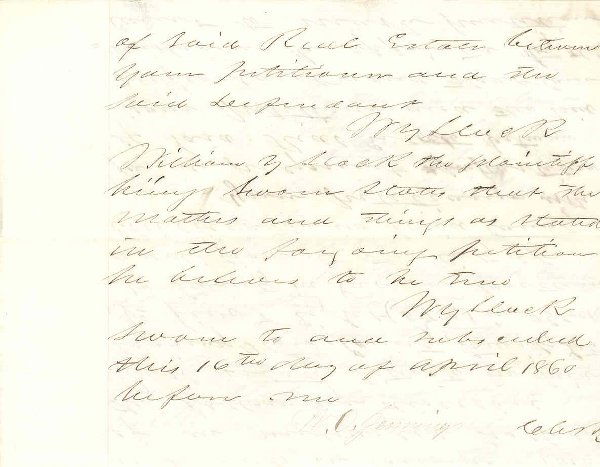 of said Real Estate between
your petitioner and the
said defendant
Wm Y Slack
William Y Slack the plaintiff
being sworn states that the
matters and things as stated
in the forgoing petition
he believes to be true
Wm Y Slack
Sworn to and subscribed
this 16th day of April 1860
before me
Jennings
Clerk